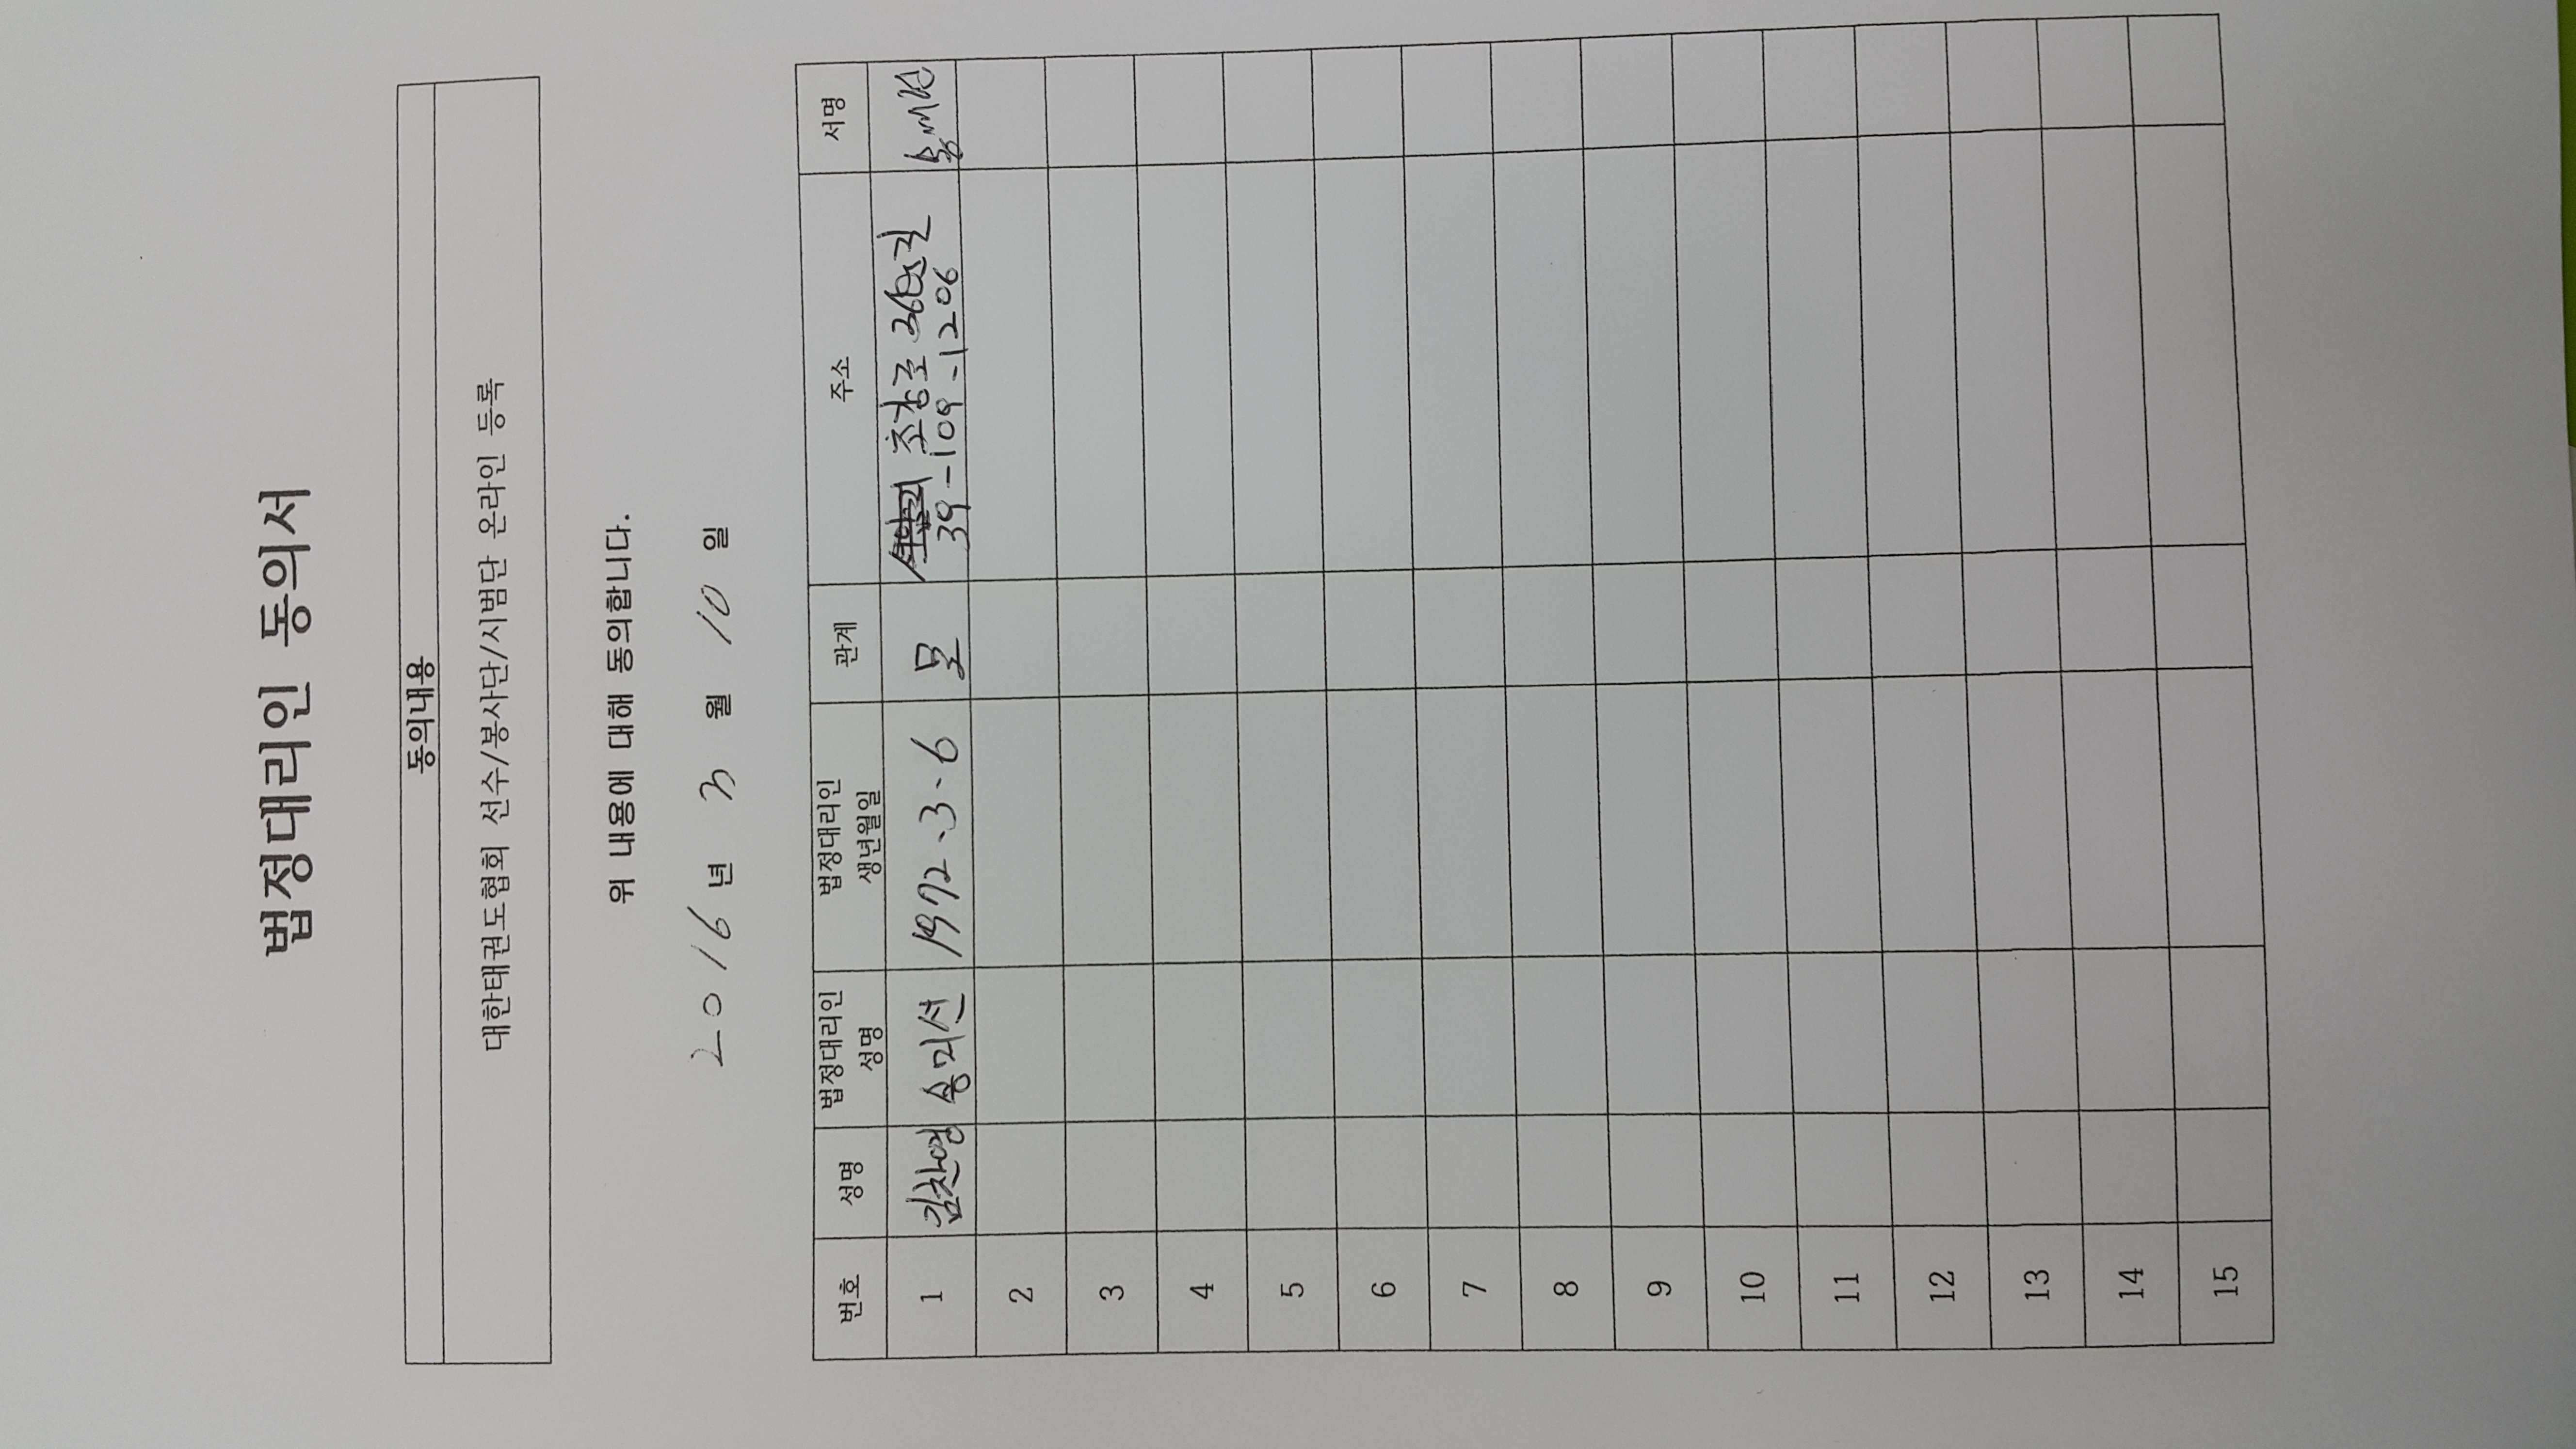 법정대리인 동의서
동의내용
대한태권도협회 선수/봉사단/시범단 온라인 등록
위 내용에 대해 동의합니다.
2016 년 3 월 10 일
번호 성명 법정대리인 성명 법정대리인 생년월일 관계 주소 서명
1 김찬영 송미선 1972.3.6 모 초장로 36번길 39-109-1206 송미선
2
3
4
5
6
7
8
9
10
11
12
13
14
15